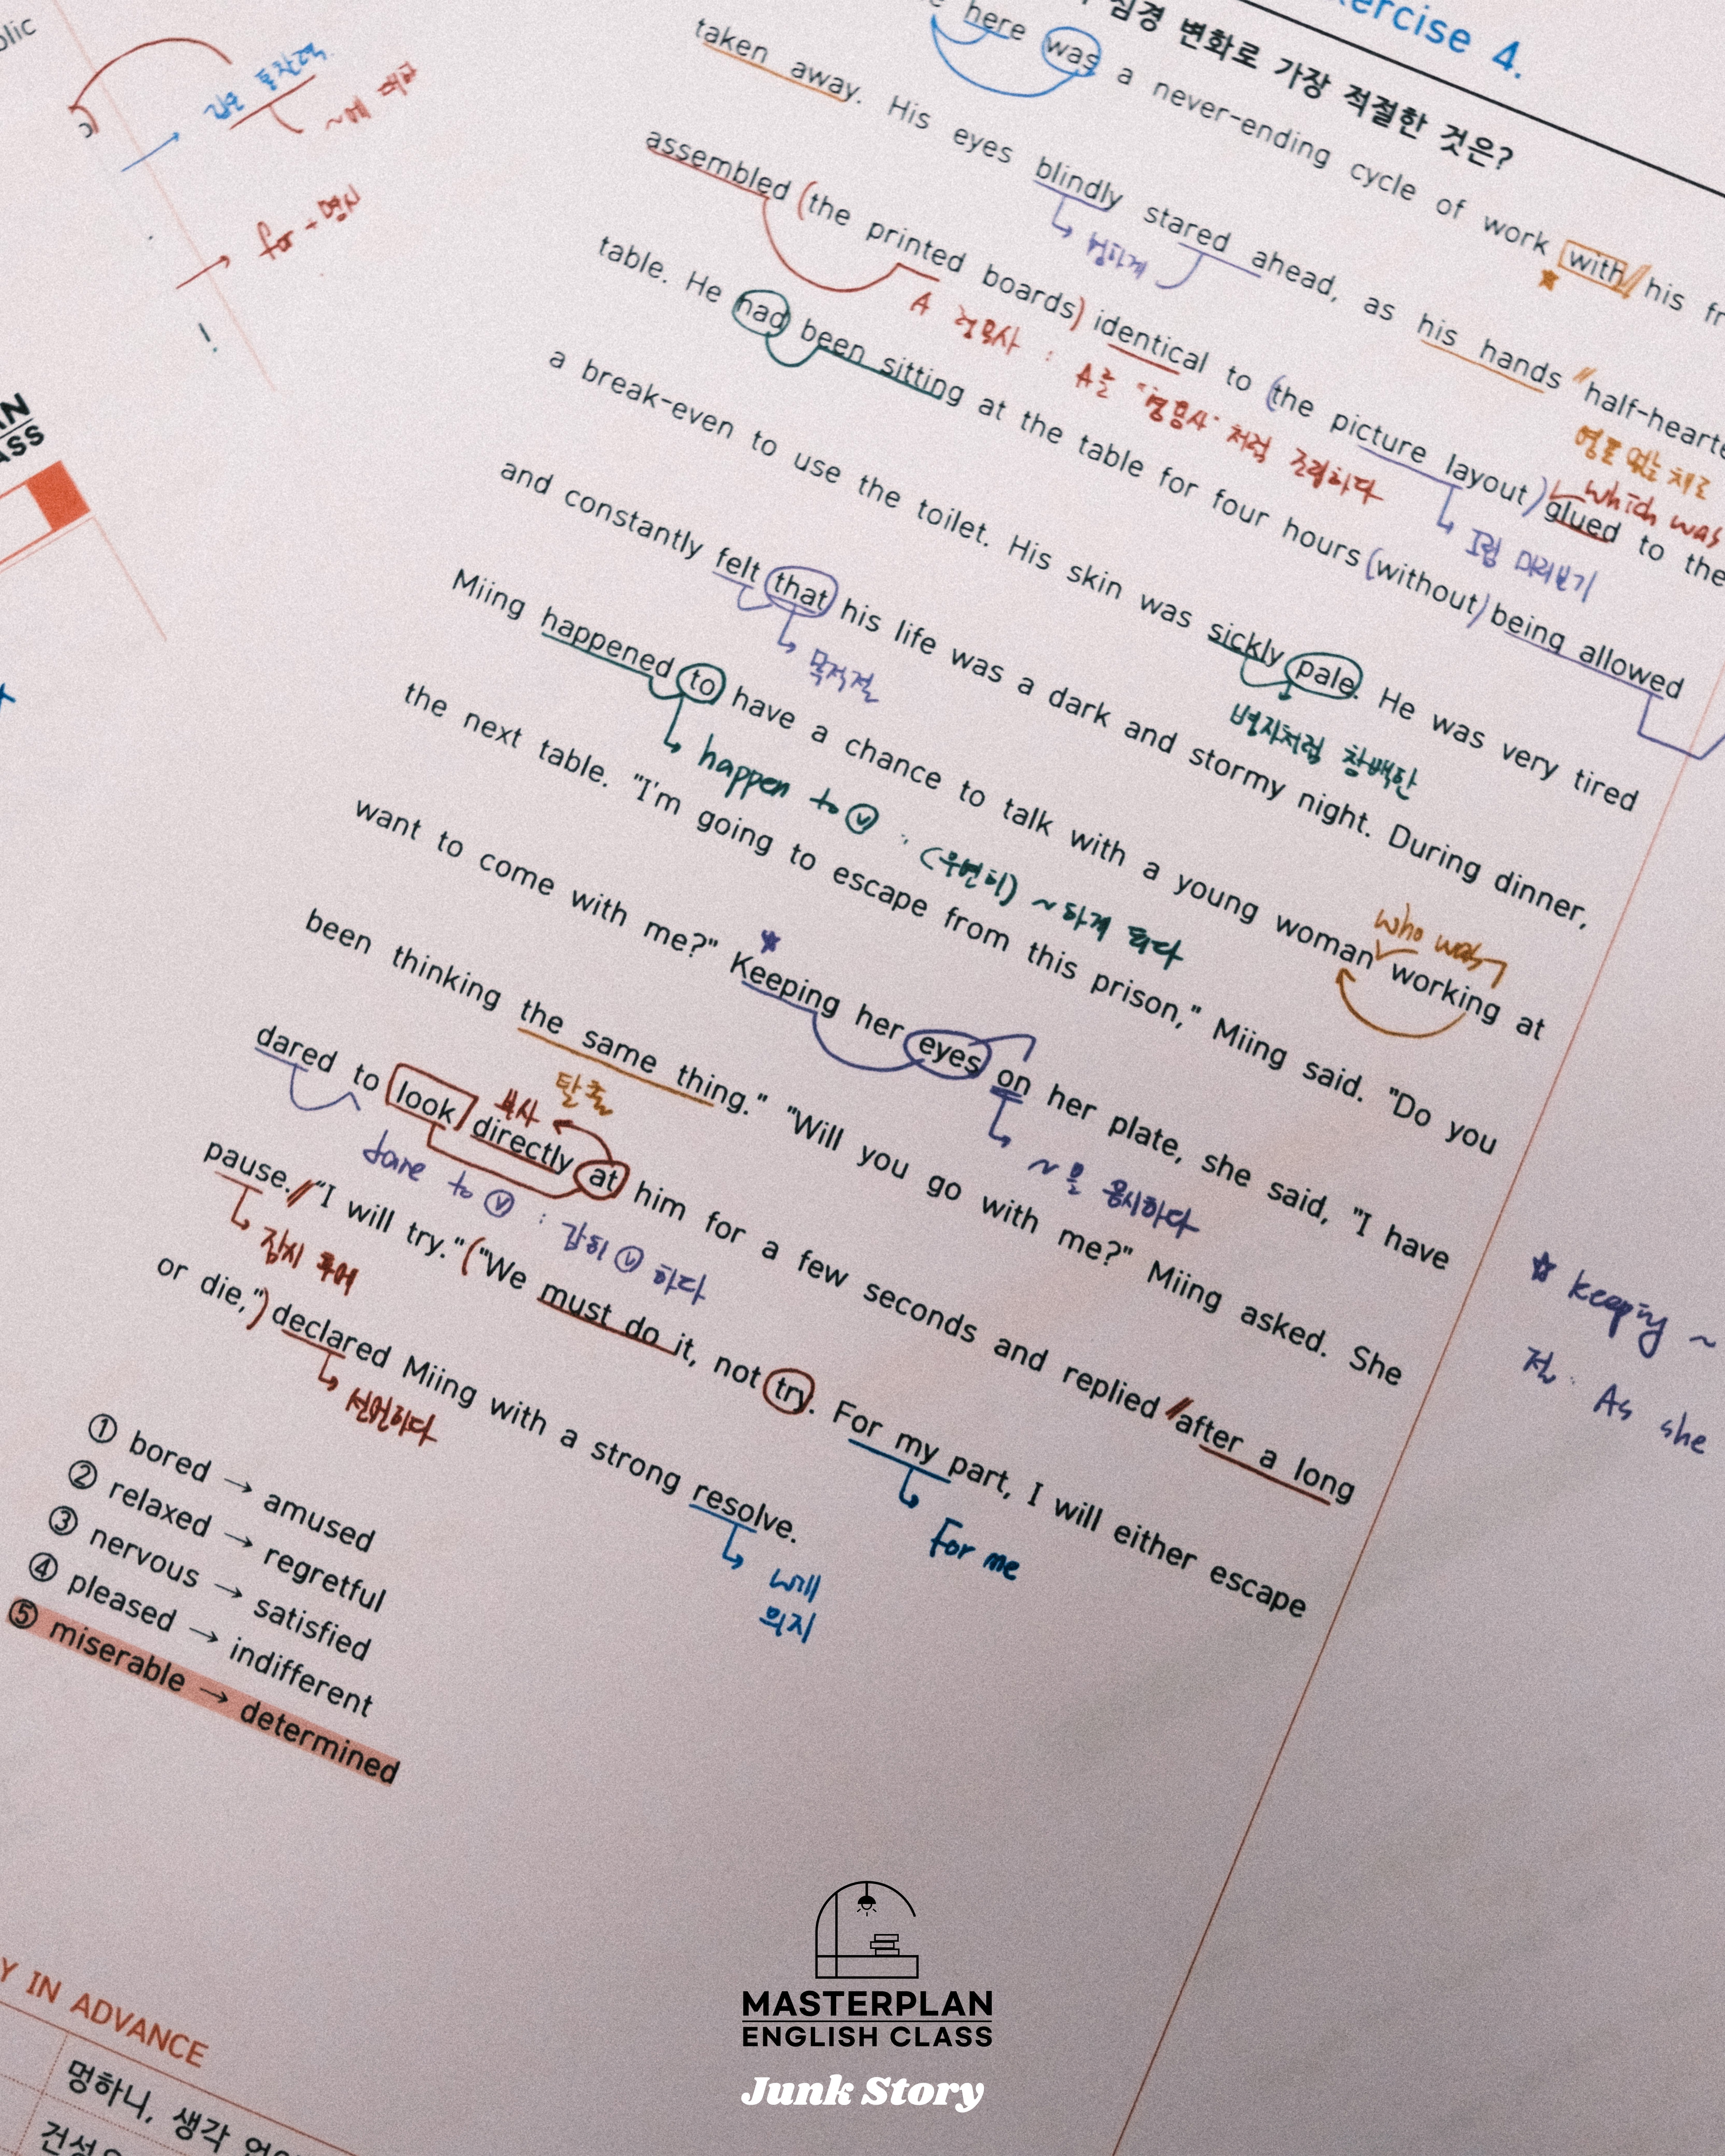 Exercise 4.
심경 변화로 가장 적절한 것은?
here was a never-ending cycle of work with his
taken away. His eyes blindly stared ahead, as his hands half-hearte
멍하게
영혼 없는 채로
assembled (the printed boards) identical to (the picture layout) glued to the
which was
A 형용사 : A를 "형용사" 처럼 조립하다
그림 미리보기
table. He had been sitting at the table for four hours (without) being allowed
a break-even to use the toilet. His skin was sickly pale. He was very tired
병자처럼 창백한
and constantly felt that his life was a dark and stormy night. During dinner,
목적절
Miing happened to have a chance to talk with a young woman working at
who was
happen to ⓥ : (우연히) ~하게 되다
the next table. "I'm going to escape from this prison," Miing said. "Do you
want to come with me?" Keeping her eyes on her plate, she said, "I have
~을 응시하다
☆ keeping ~
전: As she
been thinking the same thing." "Will you go with me?" Miing asked. She
탈출
부사
dared to look directly at him for a few seconds and replied after a long
dare to ⓥ : 감히 ⓥ 하다
pause. "I will try." ("We must do it, not try. For my part, I will either escape
잠시 후에
For me
or die,") declared Miing with a strong resolve.
선언하다
will
의지
① bored → amused
② relaxed → regretful
③ nervous → satisfied
④ pleased → indifferent
⑤ miserable → determined
for + 명사
~에 대한
IN ADVANCE
멍하니, 생각
MASTERPLAN
ENGLISH CLASS
Junk Story